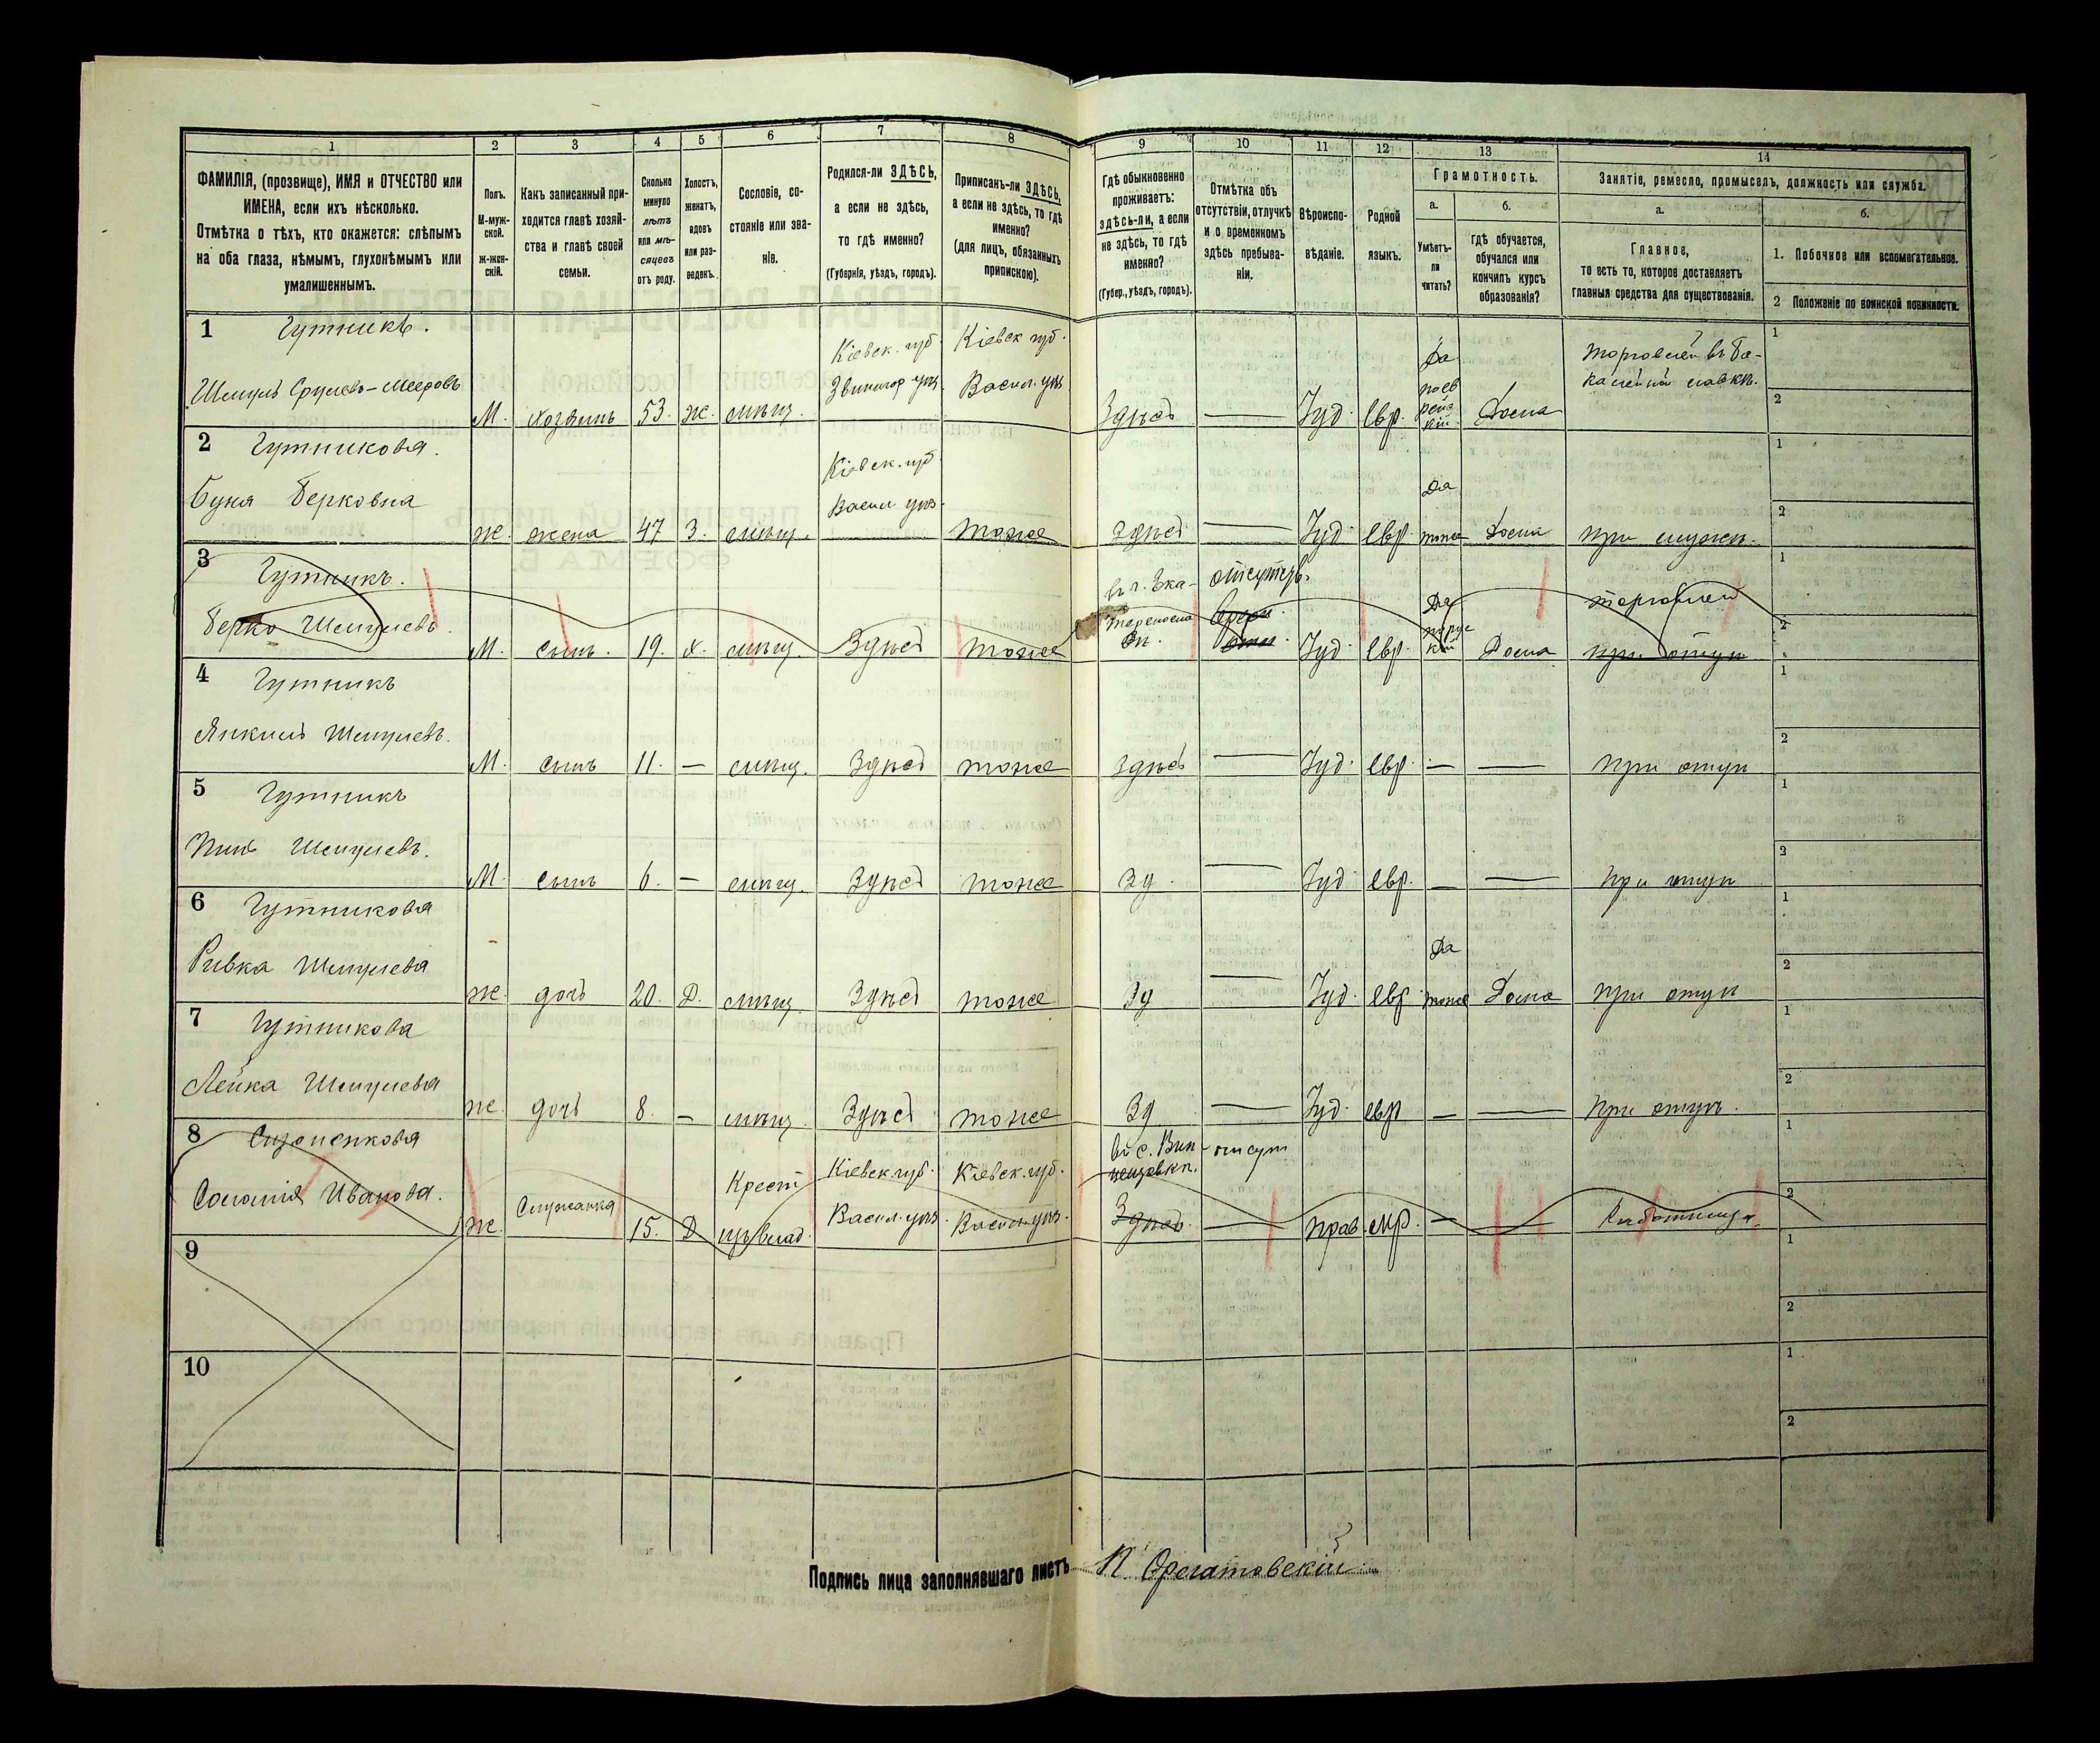 1 2 3 4 5 6 7 8 9 10 11 12 13 14
ФАМИЛІЯ, (прозвище), ИМЯ и ОТЧЕСТВО или
ИМЕНА, если ихъ нѣсколько.
Отмѣтка о тѣхъ, кто окажется: слѣпымъ
на оба глаза, нѣмымъ, глухонѣмымъ или
умалишеннымъ.
Полъ.
М-муж-
ской.
Ж-жен-
скій.
Какъ записанный при-
ходится главѣ хозяй-
ства и главѣ своей
семьи.
Сколько
минуло
лѣтъ
или мѣ-
сяцевъ
отъ роду.
Холостъ,
женатъ,
вдовъ
или раз-
веденъ.
Сословіе, со-
стояніе или зва-
ніе.
Родился-ли ЗДѢСЬ,
а если не здѣсь,
то гдѣ именно?
(Губернія, уѣздъ, городъ).
Приписанъ-ли ЗДѢСЬ,
а если не здѣсь, то гдѣ
именно?
(для лицъ, обязанныхъ
припискою).
Гдѣ обыкновенно
проживаетъ:
здѣсь-ли, а если
не здѣсь, то гдѣ
именно?
(Губер., уѣздъ, городъ).
Отмѣтка объ
отсутствіи, отлучкѣ
и о временномъ
здѣсь пребыва-
ніи.
Вѣроиспо-
вѣданіе.
Родной
языкъ.
Грамотность.
а.
Умѣетъ-
ли
читать?
б.
Гдѣ обучается,
обучался или
кончилъ курсъ
образованія?
Занятіе, ремесло, промыселъ, должность или служба.
а.
Главное,
то есть то, которое доставляетъ
главныя средства для существованія.
б.
1. Побочное или вспомогательное.
2 Положеніе по воинской повинности.
1 Гутникъ.
Шмуль Срулевъ-Мееровъ
М. хозяинъ 53. ж. мѣщ.
Кіевск. губ.
Звенигор. уѣз.
Кіевск губ.
Васил. уѣз.
Здѣсь — Іуд. Евр.
Да
поев
рейс
кій
Дома
Торговлей въ ба-
калейной лавкѣ.
1
2
2 Гутникова.
Буня Берковна
ж. жена 47 З. мѣщ.
Кіевск. губ.
Васил уѣз.
тоже
Здѣсь — Іуд. Евр.
Да
тоже Дома при мужѣ.
1
2
3 Гутникъ.
Берко Шмулевъ.
М. сынъ. 19. х. мѣщ. Здѣсь тоже
въ г. Ека-
отсутств.
Іуд. Евр.
Да
Дома
торговлей
при отцѣ
1
2
4 Гутникъ
Янкель Шмулевъ.
М. сынъ 11. — мѣщ. Здѣсь тоже
Здѣсь — Іуд. Евр. — — при отцѣ
1
2
5 Гутникъ
Шмулевъ.
М. сынъ 6. — мѣщ. Здѣсь тоже
Зд. — Іуд Евр. — — при отцѣ
1
2
6 Гутникова
Ривка Шмулева
ж. дочь 20. Д. мѣщ. Здѣсь тоже
Зд — Іуд. Евр.
Да
тоже Дома при отцѣ
1
2
7 Гутникова
Лейка Шмулева
ж. дочь 8. — мѣщ. Здѣсь тоже
Зд — Іуд. Евр — — при отцѣ.
1
2
8
Иванова.
ж. Служанка 15. Д
Крест
Кіевск. губ.
Васил. уѣз.
Кіевск. губ.
Васил. уѣз.
отсут
Здѣсь. — прав мр. — — Работница.
1
2
9
1
2
10
1
2
Подпись лица заполнявшаго листъ